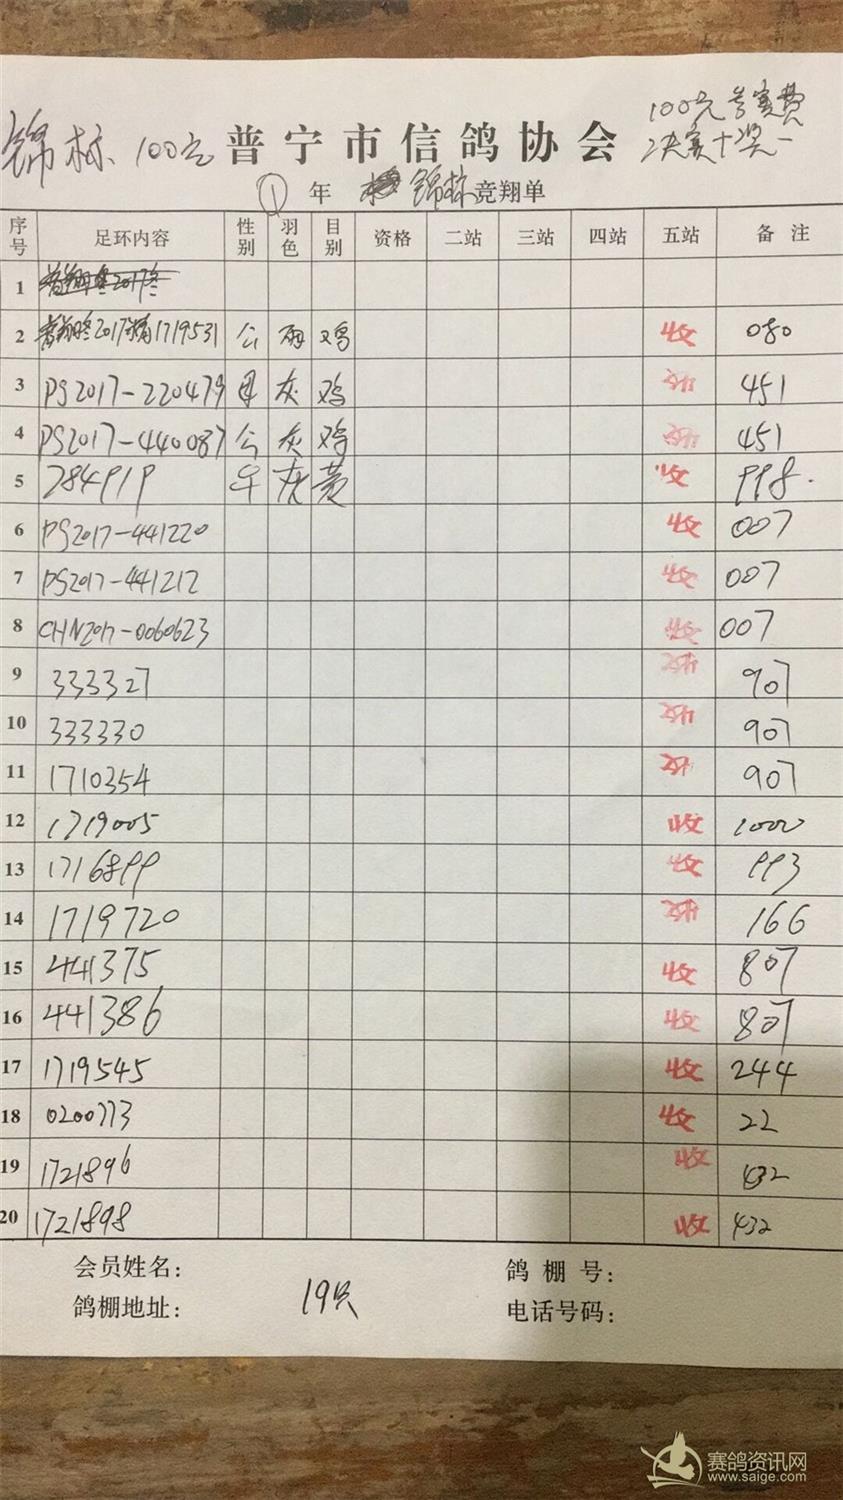 锦标 100元 普宁市信鸽协会 100元 赛费
决赛十奖一
① 年 锦标 竞翔单
序号 足环内容 性别 羽色 目别 资格 二站 三站 四站 五站 备注
1
2 2017 1719531 公 雨 鸡 收 080
3 PS2017-220479 母 灰 鸡 收 451
4 PS2017-440087 公 灰 鸡 收 451
5 284919 灰 黄 收 998.
6 PS2017-441220 收 007
7 PS2017-441212 收 007
8 CHN2017-0060623 收 007
9 333327 收 907
10 333330 收 907
11 1710354 收 907
12 1719005 收 1000
13 1716899 收 993
14 1719720 收 166
15 441375 收 807
16 441386 收 807
17 1719545 收 244
18 0200773 收 22
19 1721896 收 432
20 1721898 收 432
会员姓名： 鸽棚号：
鸽棚地址： 19只 电话号码：
赛鸽资讯网
www.saige.com